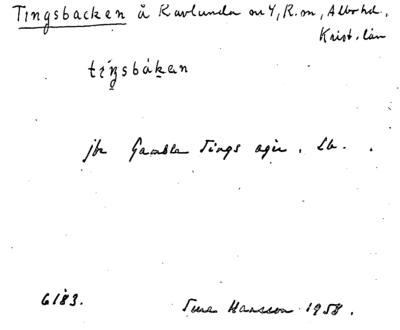 Tingsbacken å Kavlunda nr 4, R. sn, Albo hd.,
Krist. län
tiŋsbákan
jbr Gambla Tings agír. Lb.
6183.
Ture Hansson 1958.